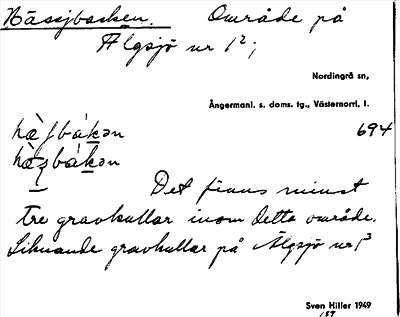 Hässjbacken. Område på
Älgsjö nr 1²;
Nordingrå sn,
Ångermanl. s. doms. tg., Västernorrl. l.
694
Det finns minst
tre gravkullar inom detta område.
Liknande gravkullar på Älgsjö nr 1³
Sven Hiller 1949